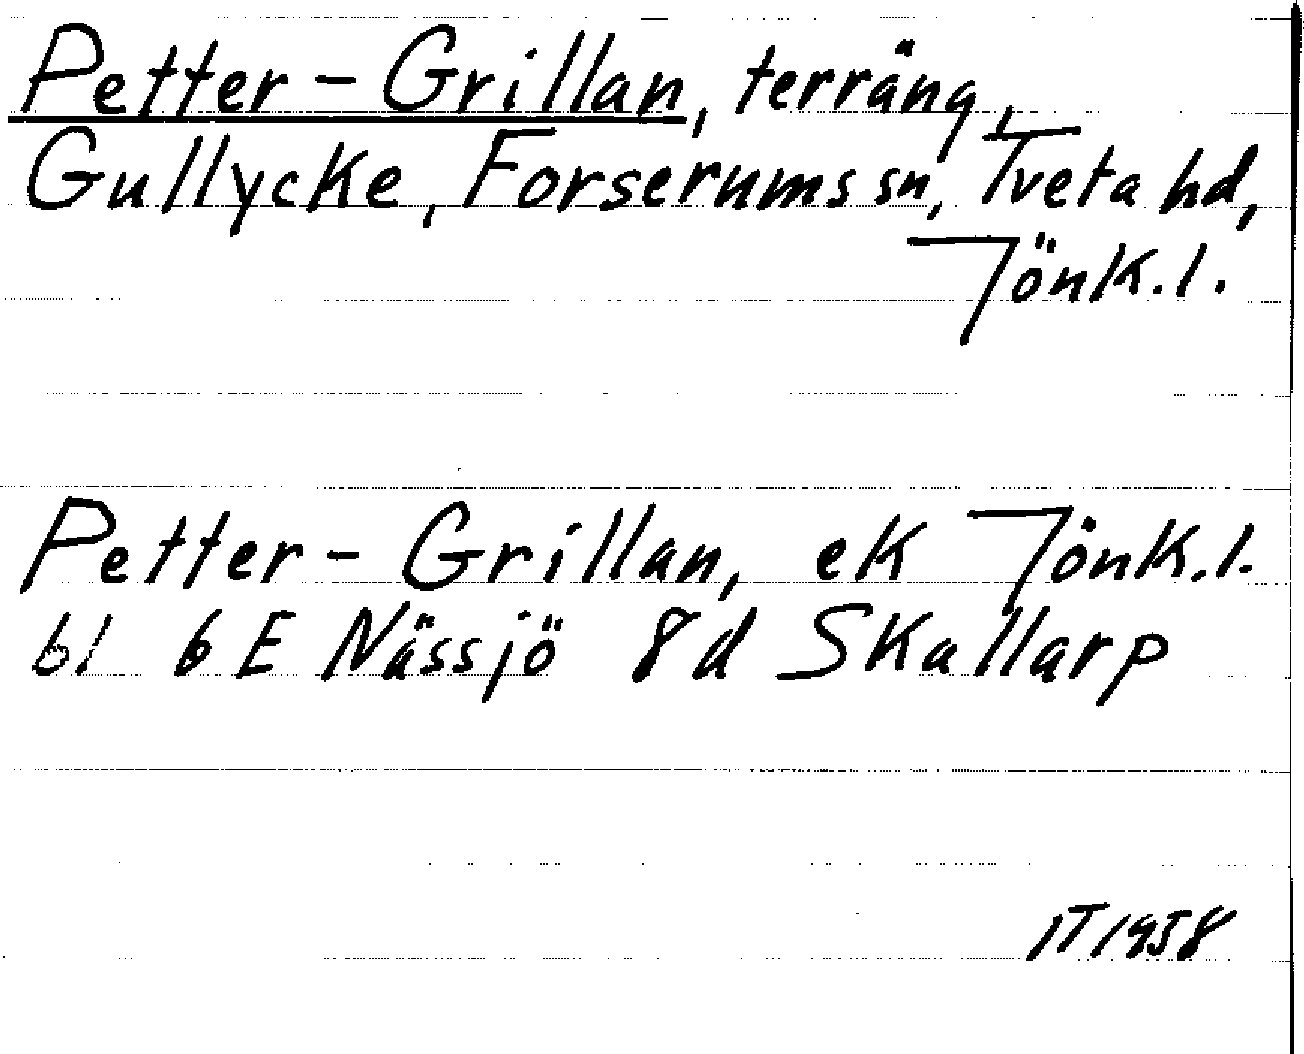 Petter-Grillan, terräng,
Gullycke, Forserums sn, Tveta hd,
Jönk.l.
Petter-Grillan, ek Jönk.l.
bl 6E Nässjö 8d Skallarp
IT 1958